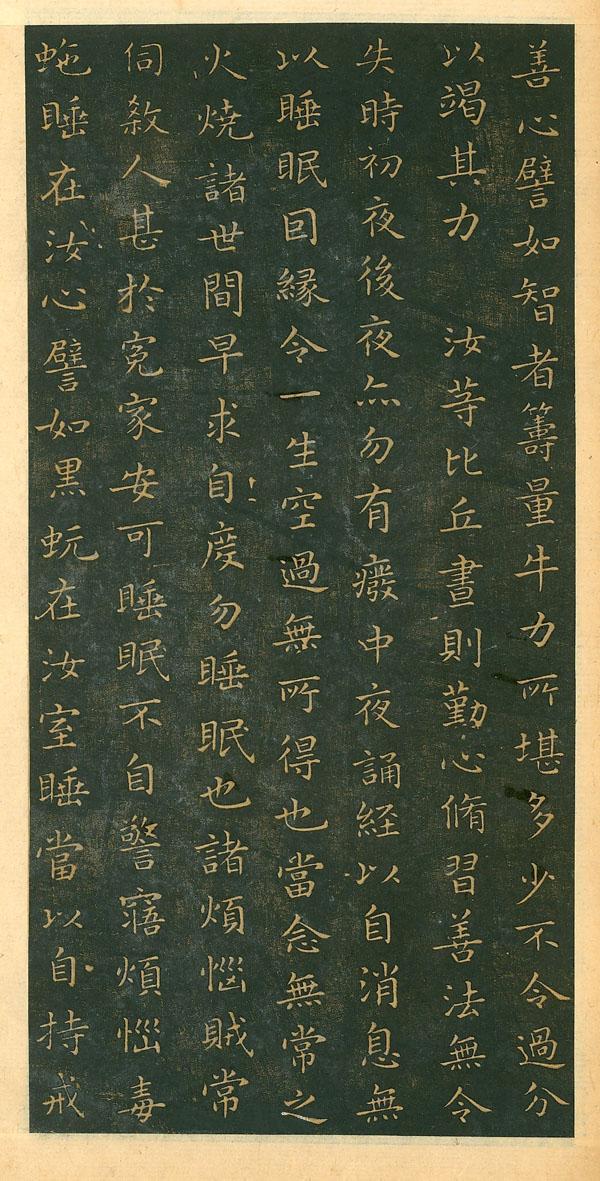 善心譬如智者籌量牛力所堪多少不令過分
以竭其力　汝等比丘晝則勤心脩習善法無令
失時初夜後夜亦勿有癈中夜誦經以自消息無
以睡眠因緣令一生空過無所得也當念無常之
火燒諸世間早求自度勿睡眠也諸煩惱賊常
伺煞人甚於寃家安可睡眠不自警寤煩惱毒
虵睡在汝心譬如黒蚖在汝室睡當以自持戒